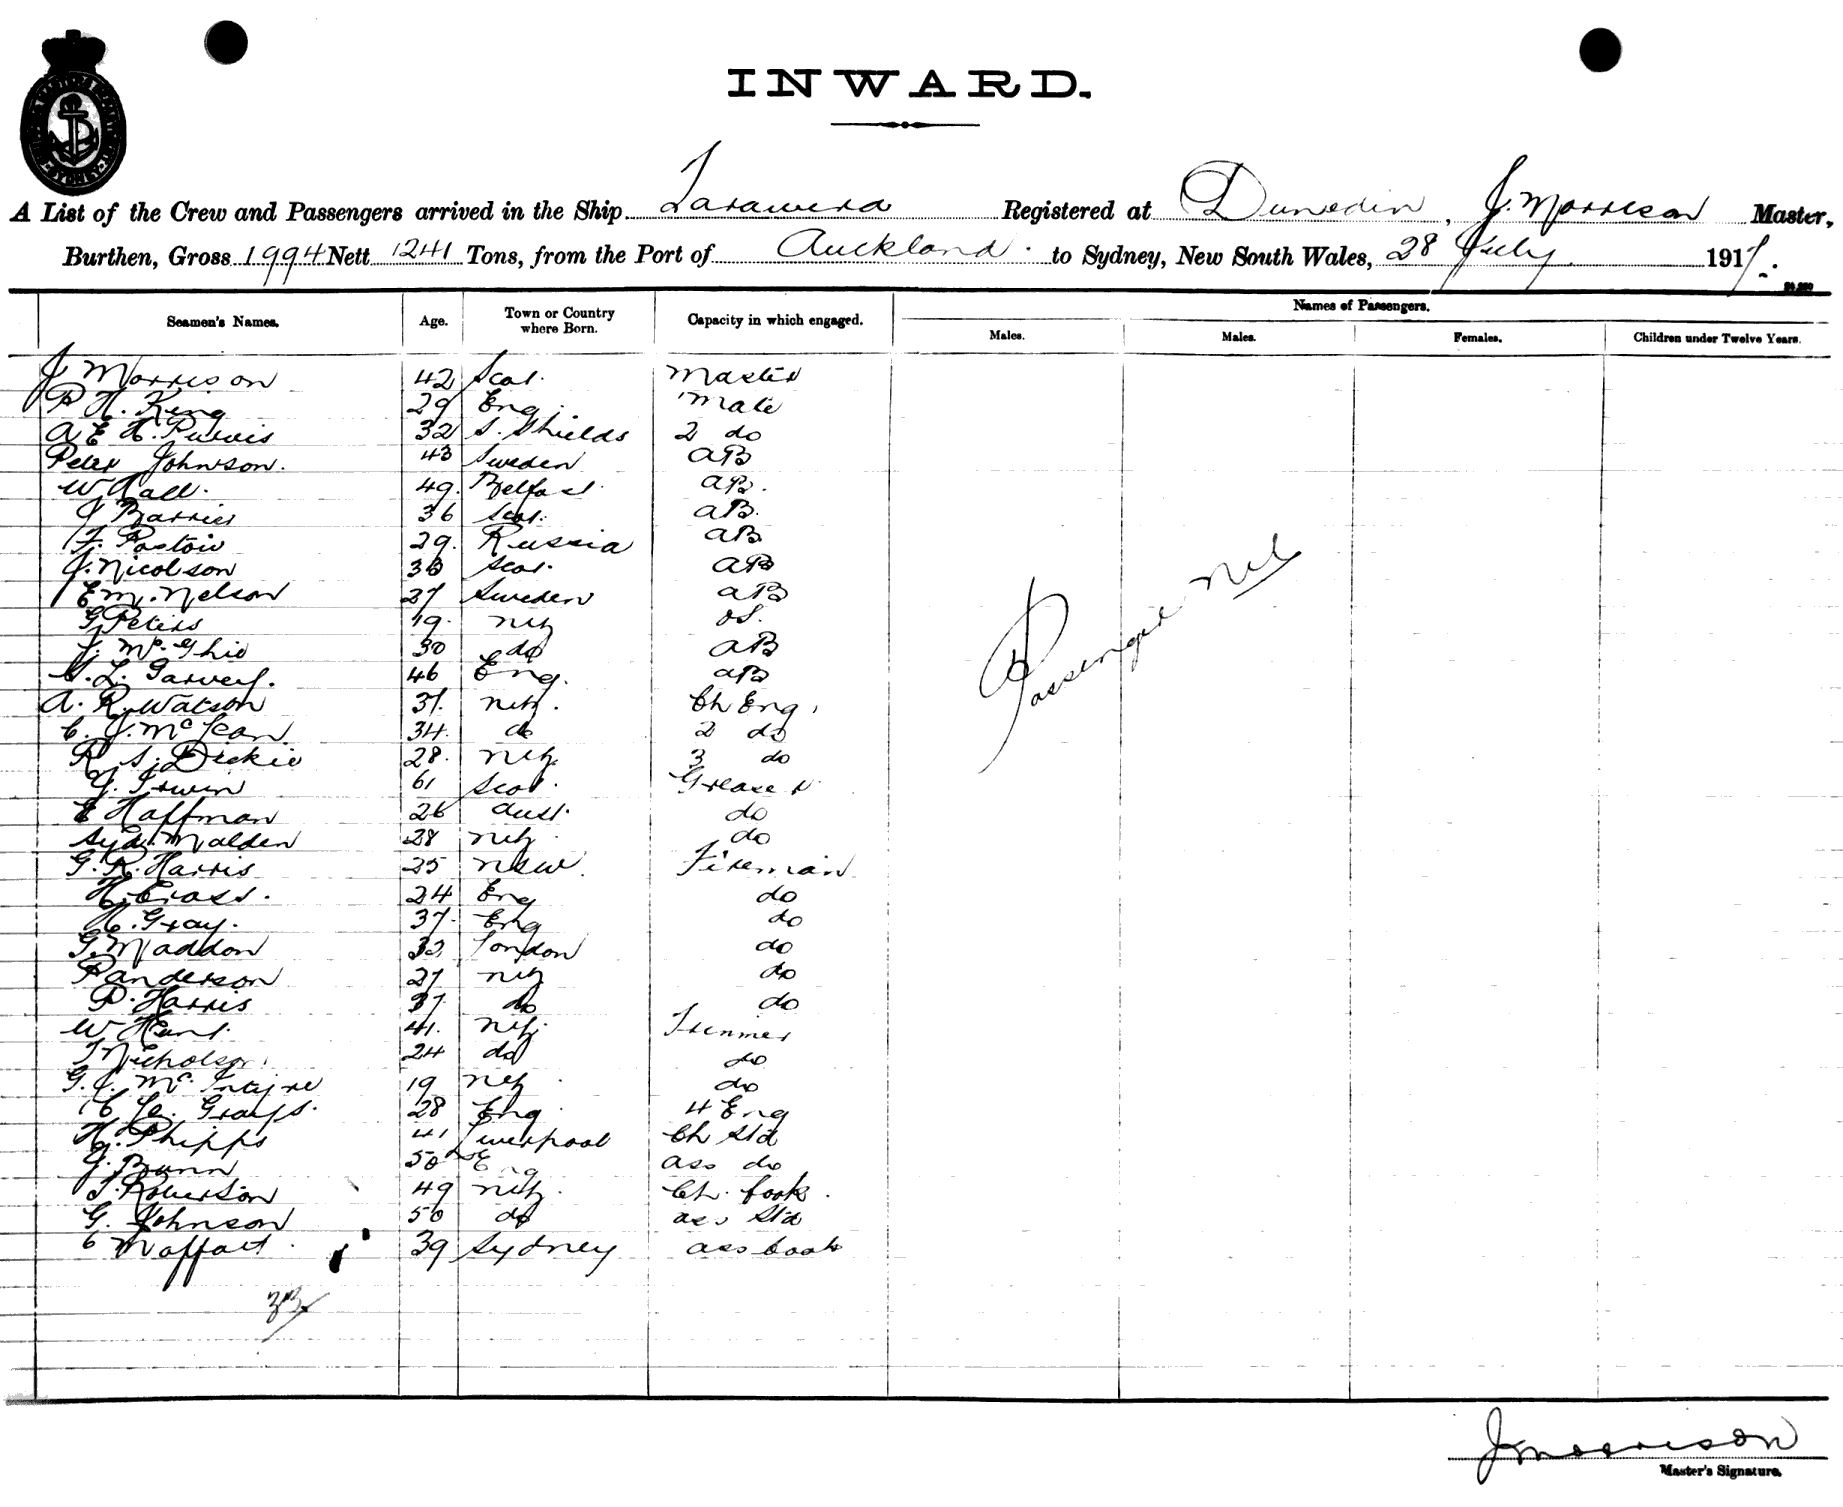 INWARD.
A List of the Crew and Passengers arrived in the Ship Tarawera Registered at Dunedin, J. Morrison Master,
Burthen, Gross 1994 Nett 1241 Tons, from the Port of Auckland. to Sydney, New South Wales, 28 July 1917.
Names of Passengers.
Seamen's Names. Age. Town or Country where Born. Capacity in which engaged. Males. Males. Females. Children under Twelve Years.
J Morrison 42 Scot. Master
P H. King 29 Eng. Mate
A E H. Purvis 32 S. Shields 2 do
Peter Johnson. 43 Sweden AB
W Hall. 49. Belfast. AB.
J Barrier 36 Scot. AB.
F. Pastow 29. Russia AB
J. Nicolson 38 Scot. AB
E M. Nelson 27 Sweden AB
G Peters 19. NZ OS.
J. Mc Ghie 30 do AB
G. L. Garvey. 46 Eng. AB
A. R. Watson 37. NZ. Ch Eng.
C. J. Mc Lean. 34. do 2 do
R S. Dickie 28. NZ. 3 do
J. Irwin 61 Scot. Greaser
E Haffman 26 Aust. do
Syd. Malden 28 NZ. do
G. R. Harris 25 NSW. Fireman
H. Crass. 24 Eng do
H. Gray. 37. Eng do
G. Maddon 32 London do
P Anderson 27 NZ do
P. Harris 37. do do
W Hunt. 41. NZ. Trimmer
T Nicholson. 24 do do
G. J. Mc Intyre 19 NZ. do
C Le. Grays. 28 Eng. 4 Eng
H. Phipps 41 Liverpool Ch Std
J. Bunn 50 Eng Ass do
T. Robertson 49 NZ. Ch. Cook.
G. Johnson 50 do Ass Std
C Moffatt. 39 Sydney Ass Cook
Passengers Nil
33
J Morrison
Master's Signature.